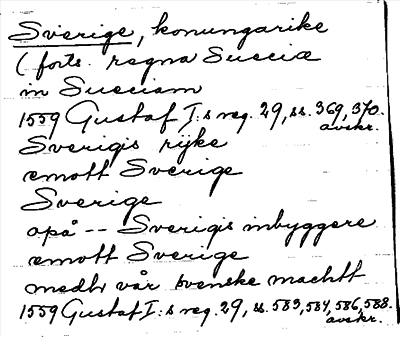 Sverige, konungarike
(forts. regna Sueciæ
in Sueciam
1559 Gustaf I:s reg. 29, ss. 369, 370.
avskr.
Sverigis rijke
emott Sverige
Sverige
opå -- Sverigis inbyggere
emott Sverige
medh vår svenske machtt
1559 Gustaf I:s reg. 29, ss. 583, 584, 586, 588.
avskr.